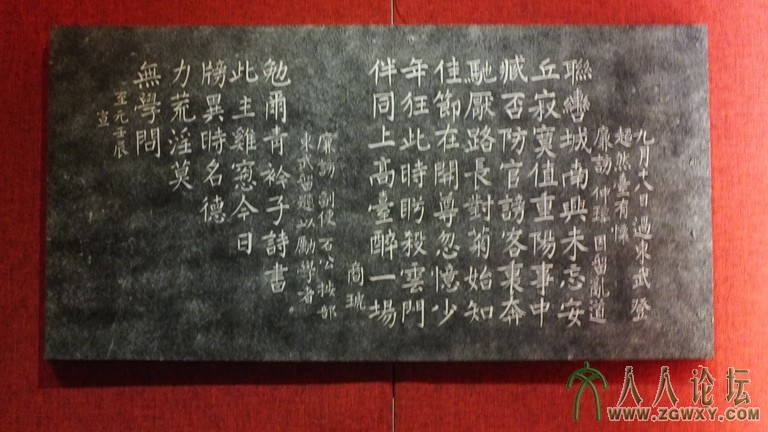 九月十八日過東武登
超然臺有懷
廉訪仲璋因留亂道
聯轡城南興未忘安
丘寂寞值重陽事中
臧否防官謗客裏奔
馳厭路長對菊始知
佳節在開尊忽憶少
年狂此時眄殺雲門
伴同上高臺醉一場
商琥
廉訪副使石公按部
東武留題以勵學者
勉爾青衿子詩書
此主雞窓今日
牓異時名德
力荒淫莫
無學問
至元壬辰
宣
人人论坛
WWW.ZGWXY.COM